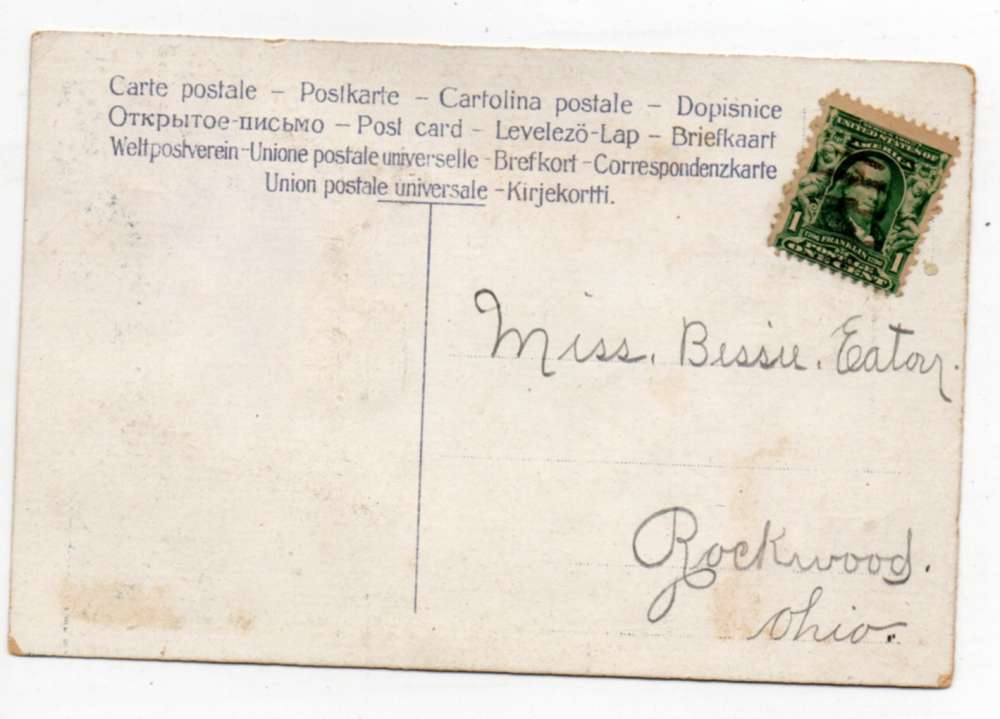 Carte postale – Postkarte – Cartolina postale – Dopisnice
Открытое-письмо – Post card – Levelező-Lap – Briefkaart
Weltpostverein-Unione postale universelle-Brefkort-Correspondenzkarte
Union postale universale-Kirjekortti.
UNITED STATES OF
AMERICA
1 FRANKLIN 1
POSTAGE
ONE CENT
Miss. Bessie. Eaton.
Rockwood.
Ohio.